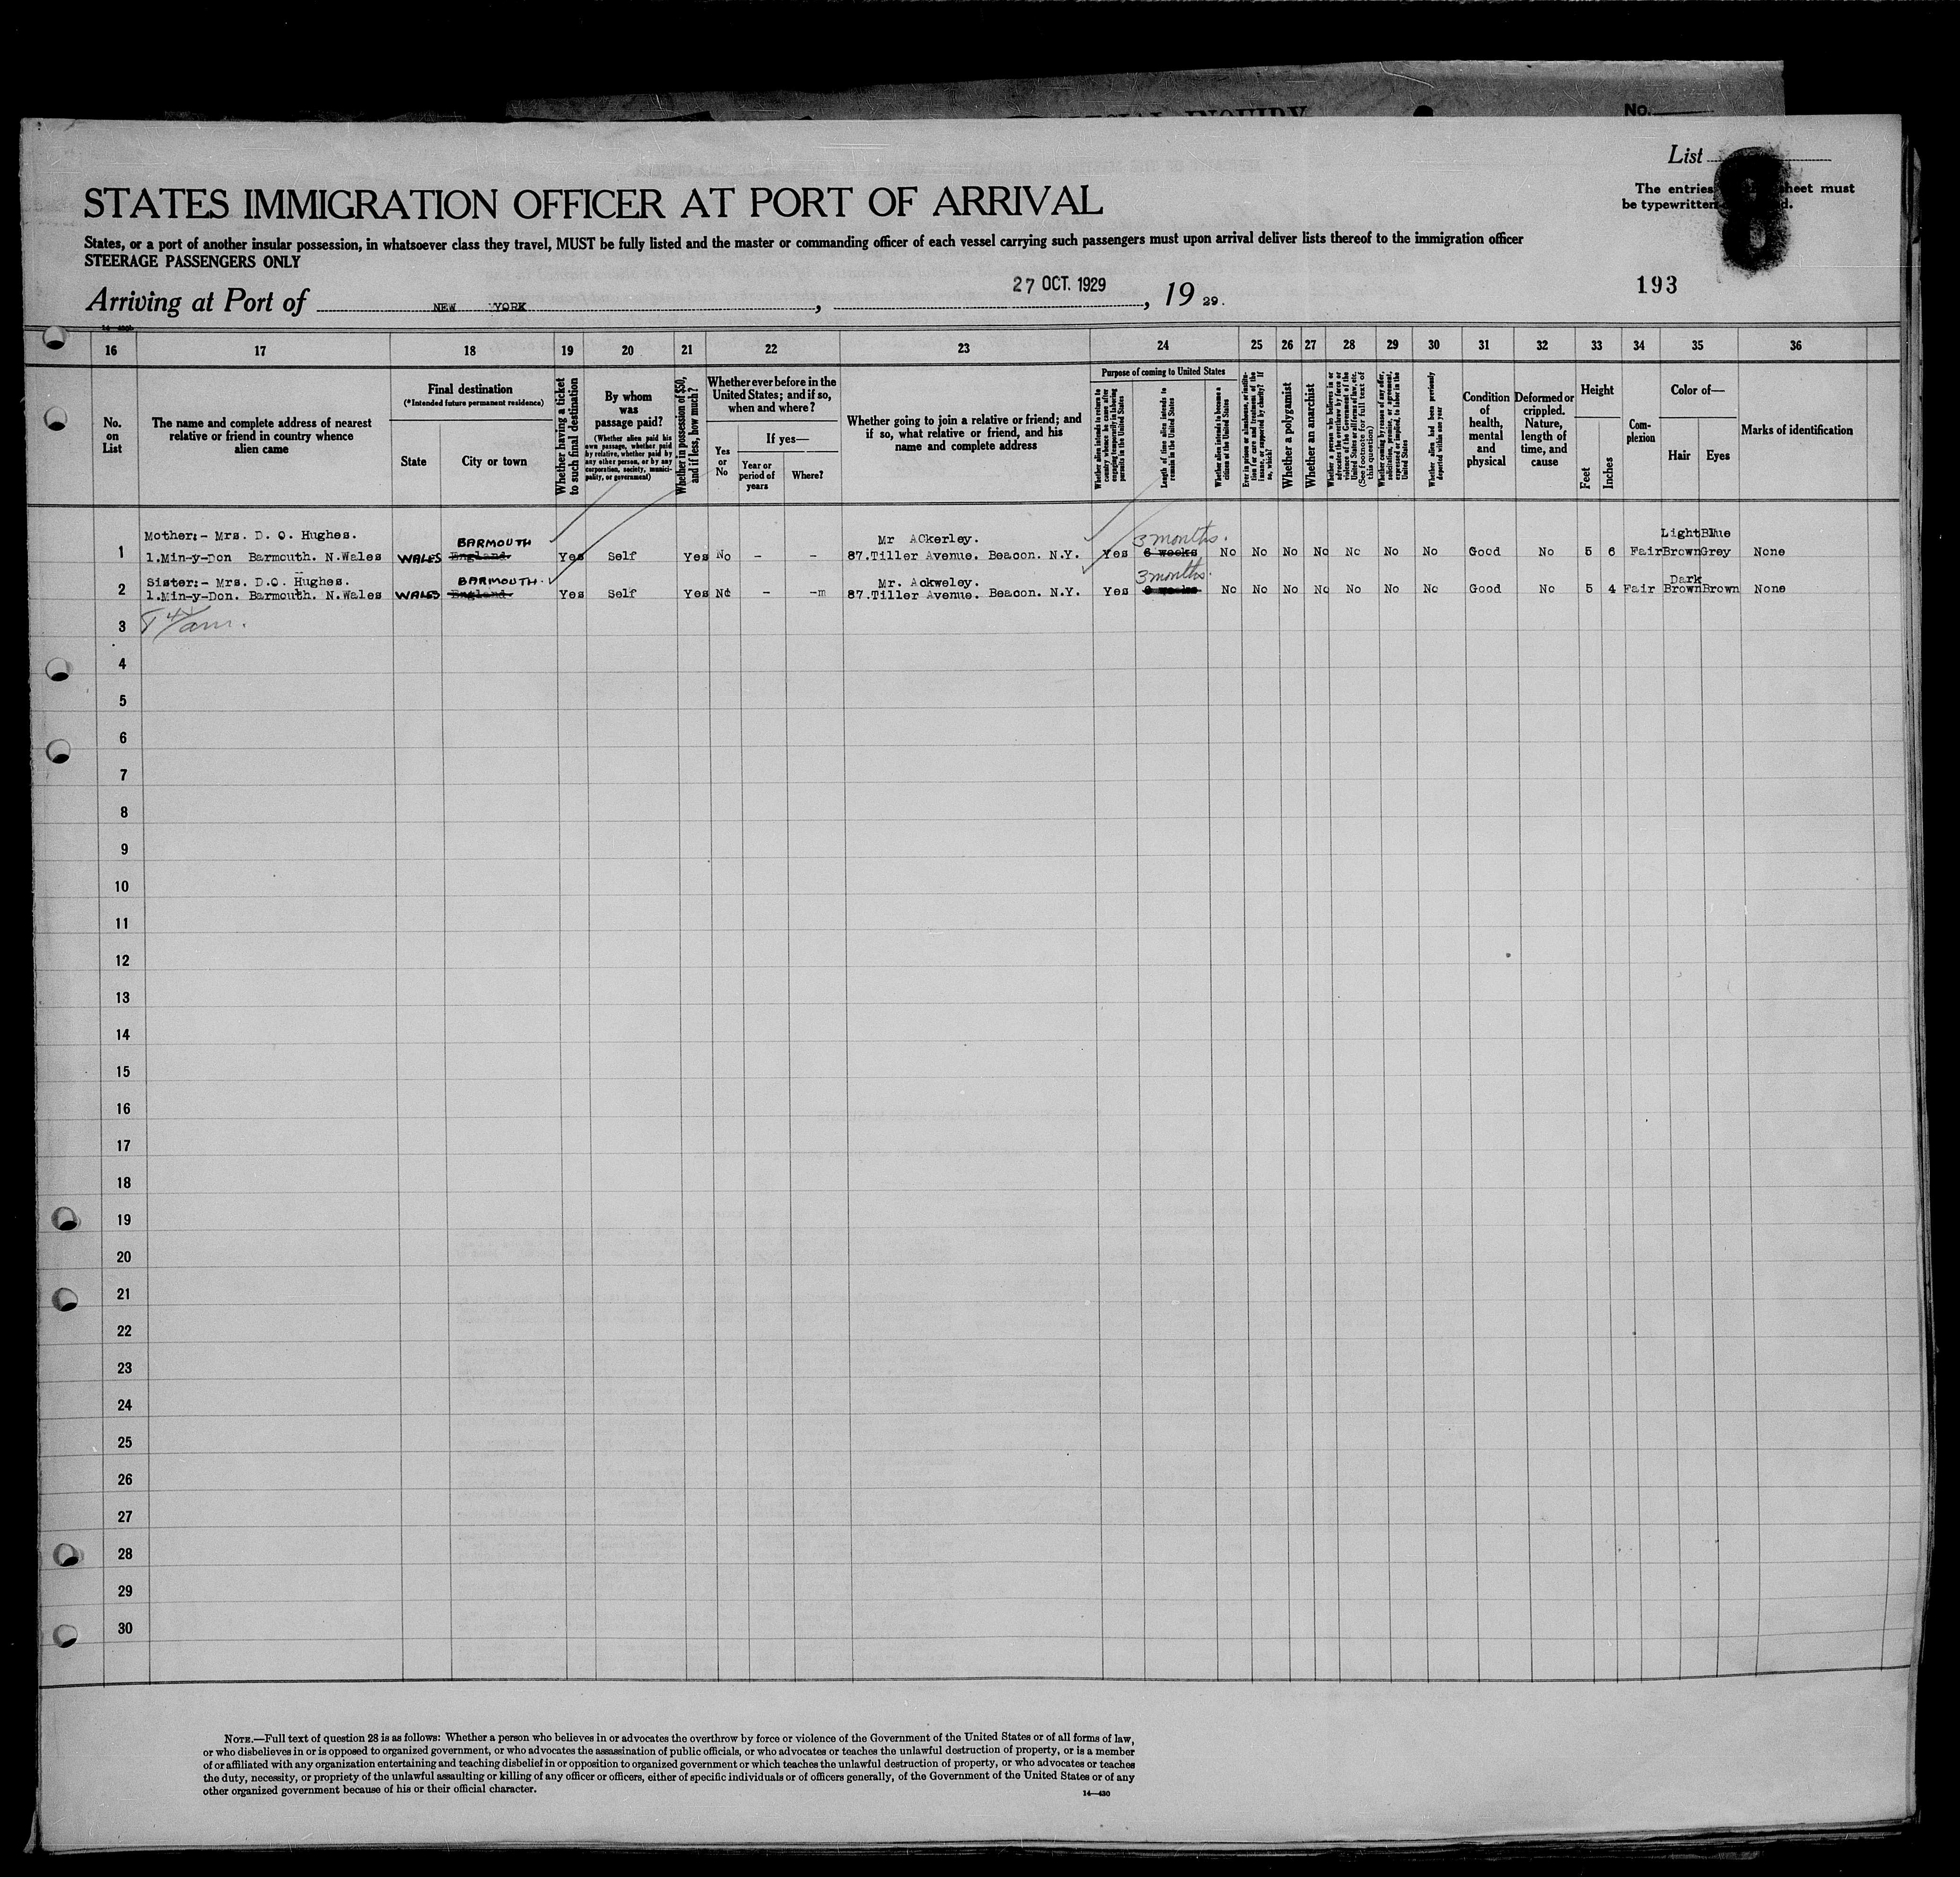 SPECIAL INQUIRY
No.
List
8
STATES IMMIGRATION OFFICER AT PORT OF ARRIVAL
The entries sheet must
be typewritten
States, or a port of another insular possession, in whatsoever class they travel, MUST be fully listed and the master or commanding officer of each vessel carrying such passengers must upon arrival deliver lists thereof to the immigration officer
STEERAGE PASSENGERS ONLY
193
Arriving at Port of NEW YORK, 27 OCT. 1929, 19 29.
16 17 18 19 20 21 22 23 24 25 26 27 28 29 30 31 32 33 34 35 36
No. on List
The name and complete address of nearest relative or friend in country whence alien came
Final destination
(*Intended future permanent residence)
State
City or town
Whether having a ticket to such final destination
By whom was passage paid?
(Whether alien paid his own passage, whether paid by relative, whether paid by any other person, or by any corporation, society, municipality, or government)
Whether in possession of $50, and if less, how much?
Whether ever before in the United States; and if so, when and where?
Yes or No
If yes—
Year or period of years
Where?
Whether going to join a relative or friend; and if so, what relative or friend, and his name and complete address
Purpose of coming to United States
Whether alien intends to return to country whence he came after engaging temporarily in laboring pursuits in the United States
Length of time alien intends to remain in the United States
Whether alien intends to become a citizen of the United States
Ever in prison or almshouse, or institution for care and treatment of the insane, or supported by charity? If so, which?
Whether a polygamist
Whether an anarchist
Whether a person who believes in or advocates the overthrow by force or violence of the Government of the United States or all forms of law, etc. (See footnote for full text of this question)
Whether coming by reason of any offer, solicitation, promise, or agreement, expressed or implied, to labor in the United States
Whether alien had been previously deported within one year
Condition of health, mental and physical
Deformed or crippled. Nature, length of time, and cause
Height
Feet
Inches
Complexion
Color of—
Hair
Eyes
Marks of identification
1 Mother:- Mrs. D. O. Hughes. 1.Min-y-Don Barmouth. N.Wales WALES England. BARMOUTH Yes Self Yes No - - Mr ACkerley. 87.Tiller Avenue. Beacon. N.Y. Yes 6 weeks 3 months. No No No No No No No Good No 5 6 Fair Light Brown Blue Grey None
2 Sister:- Mrs. D.O. Hughes. 1.Min-y-Don. Barmouth. N.Wales WALES England. BARMOUTH. Yes Self Yes No - -m Mr. Ackweley. 87.Tiller Avenue. Beacon. N.Y. Yes 3 months. No No No No No No No Good No 5 4 Fair Dark Brown Brown None
3
4
5
6
7
8
9
10
11
12
13
14
15
16
17
18
19
20
21
22
23
24
25
26
27
28
29
30
NOTE.—Full text of question 28 is as follows: Whether a person who believes in or advocates the overthrow by force or violence of the Government of the United States or of all forms of law,
or who disbelieves in or is opposed to organized government, or who advocates the assassination of public officials, or who advocates or teaches the unlawful destruction of property, or is a member
of or affiliated with any organization entertaining and teaching disbelief in or opposition to organized government or which teaches the unlawful destruction of property, or who advocates or teaches
the duty, necessity, or propriety of the unlawful assaulting or killing of any officer or officers, either of specific individuals or of officers generally, of the Government of the United States or of any
other organized government because of his or their official character.
14—430